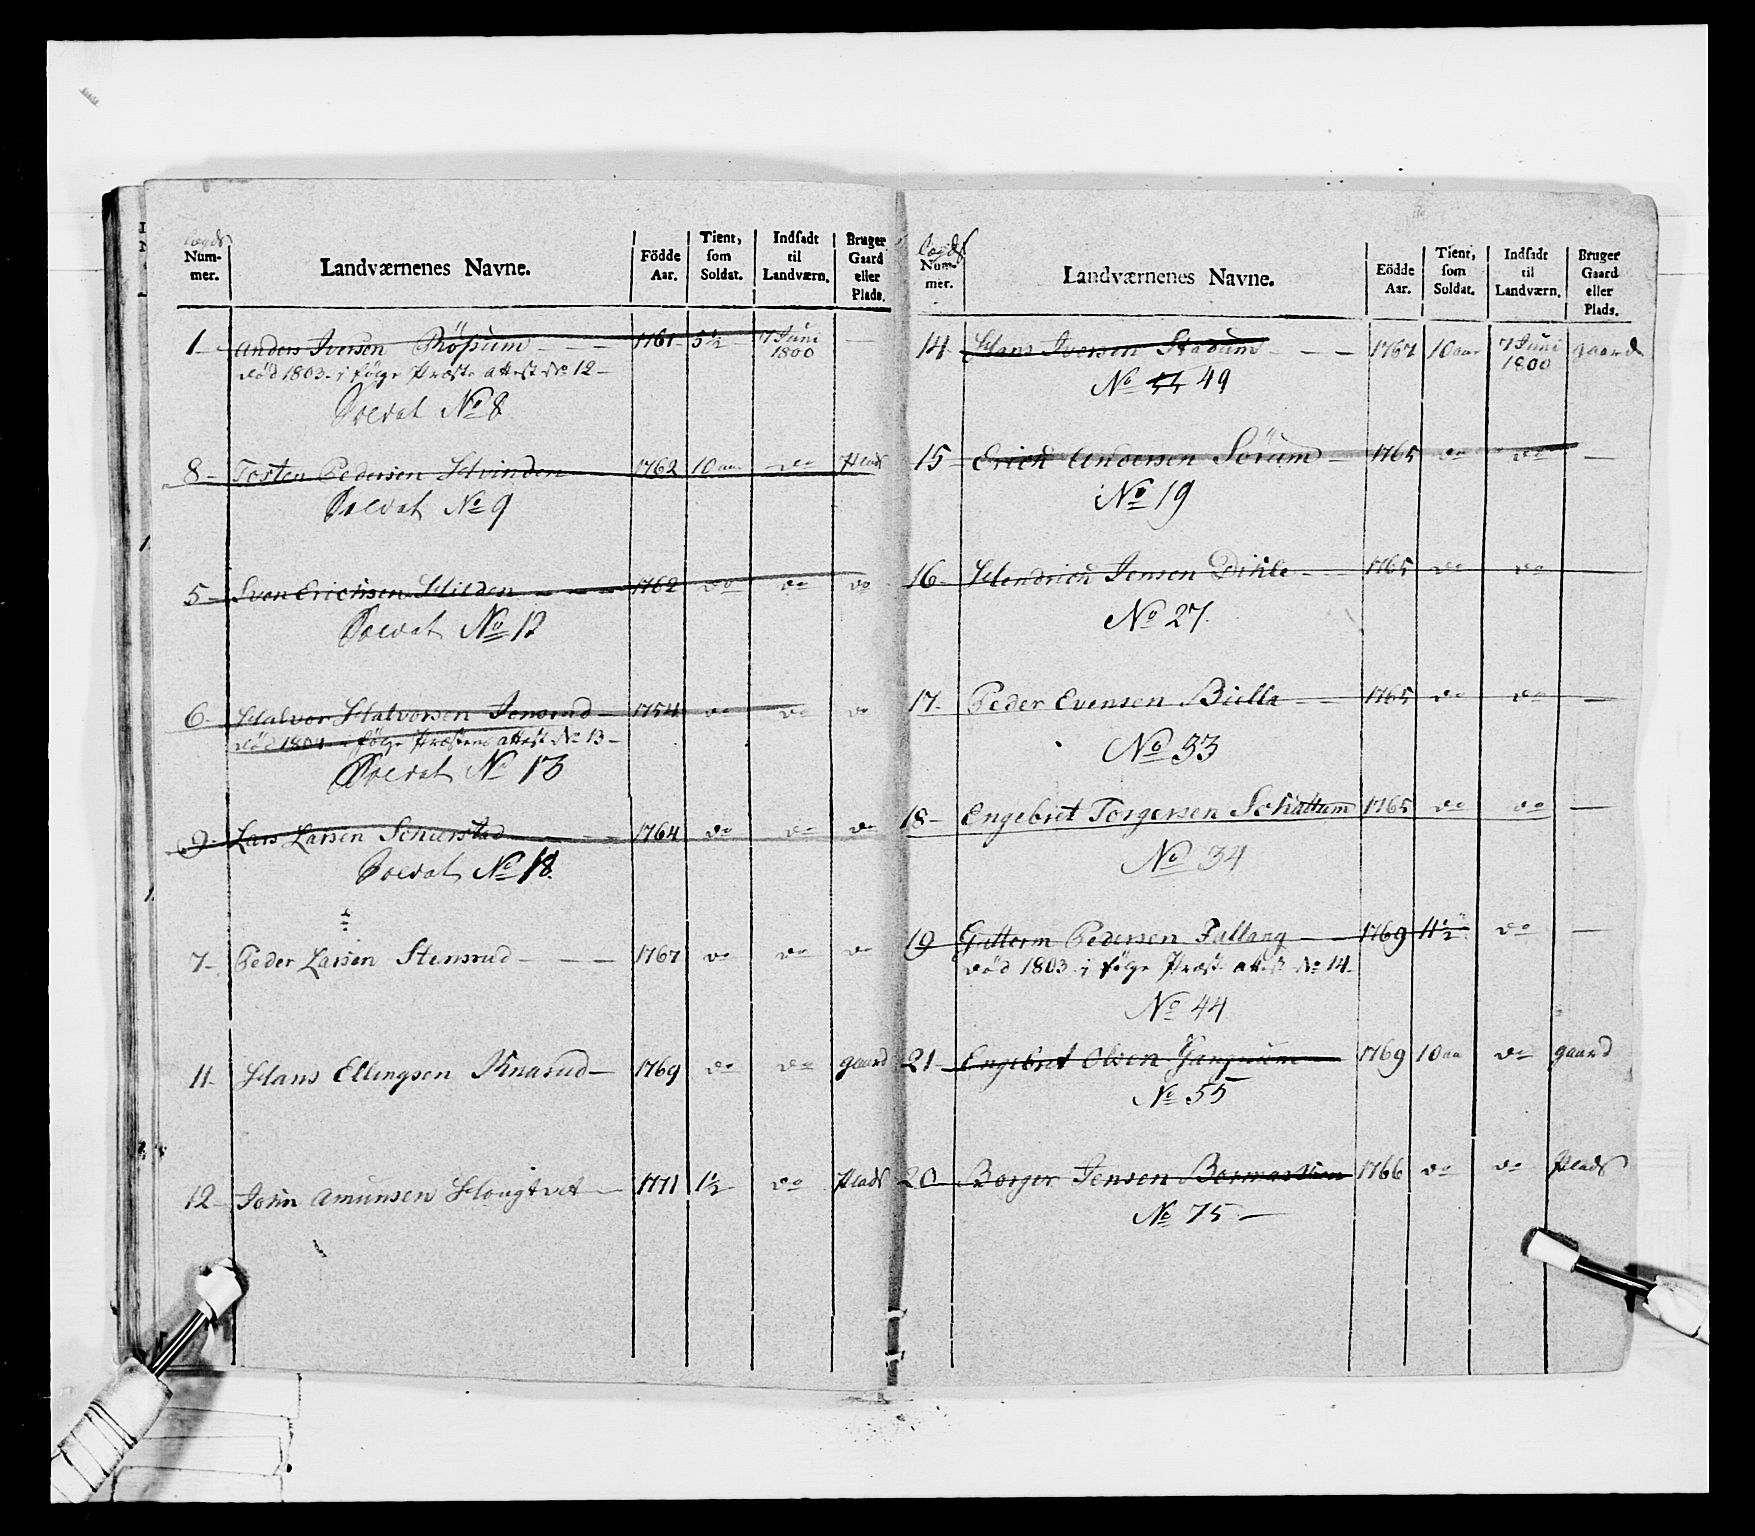 Lægds Nummer. | Landværnenes Navne. | Födde Aar. | Tient, som Soldat. | Indsadt til Landværn. | Bruger Gaard eller Plads.
1 Anders Iversen Røssum 1761 5½ 7 Juni 1800 —
død 1803 i følge Præste attest No 12
Soldat No 8
8 Tosten Pedersen Hvinden 1762 10 aar do Plads
Soldat No 9
5 Sven Erichsen Hilden 1762 do do do
Soldat No 12
6 Halvor Halvorsen Jensrud 1754 do do do
død 1804 følge Præstens attest No 13
Soldat No 13
9 Lars Larsen 1764 do do do
Soldat No 18
7 Peder Larsen Stensrud 1767 do do do
11 Hans Ellingsen Knarud 1769 do do gaard
12 John Amunsen Hougtvet 1771 1½ do Plads
Lægds Nummer. | Landværnenes Navne. | Födde Aar. | Tient, som Soldat. | Indsadt til Landværn. | Bruger Gaard eller Plads.
14 Hans Iversen Stadum 1767 10 aar 7 Juni 1800 gaard
No 49
15 Erich Andersen Sörum 1765 do do —
No 19
16 Hendrich Jensen Dihle 1765 do do —
No 27
17 Peder Evensen Biella 1765 do do —
No 33
18 Engebret Torgersen Schattum 1765 do do —
No 34
19 Guttorm Pedersen Fallang 1769 11½ do —
død 1803 i følge Præst attest No 14
No 44
21 Engebret Olsen 1769 10 aar do gaard
No 55
20 Borger Jensen 1766 do do Plads
No 75